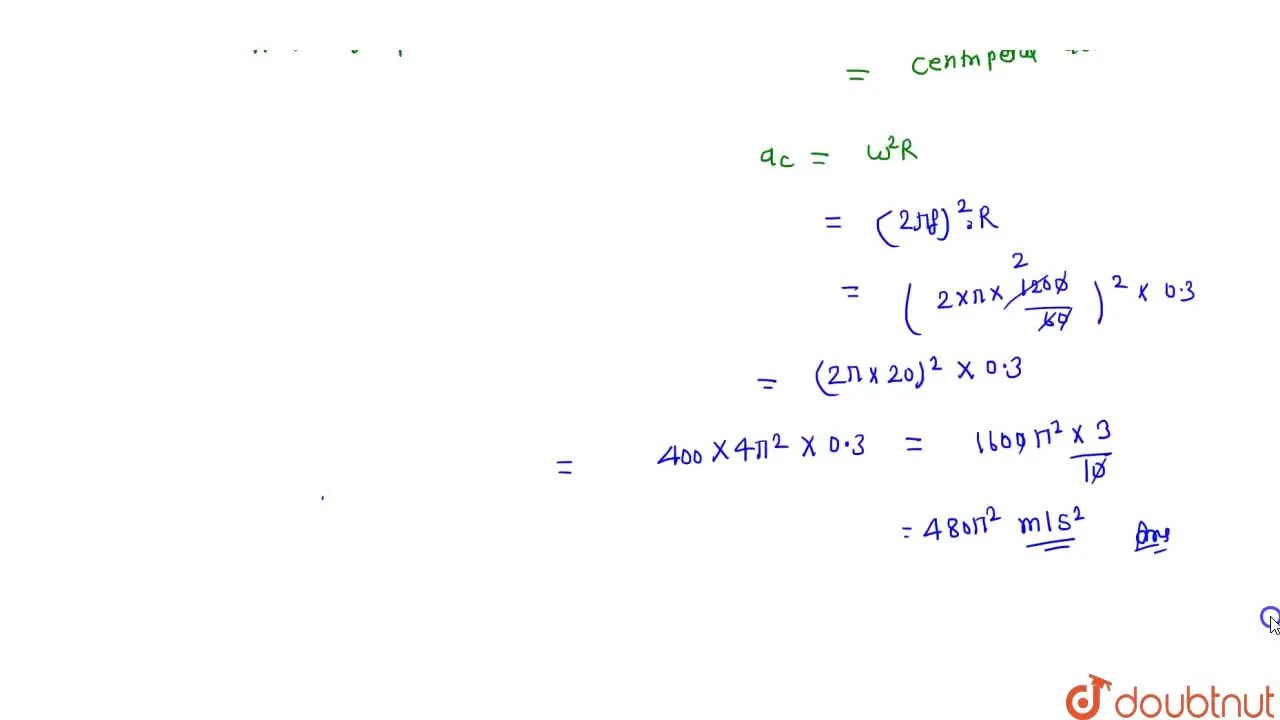 = Centripetal
a_c = ω²R
= (2πf)².R
2
= (2×π×1200/60)² × 0.3
= (2π×20)² × 0.3
= 400×4π² × 0.3 = 1600π² × 3/10
= 480π² m/s² Ans
doubtnut